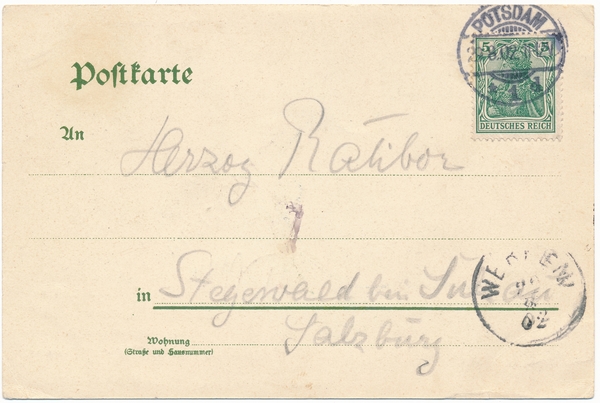 POTSDAM
5 5
DEUTSCHES REICH
Postkarte
An Herzog Ratibor
in Stegewald bei
Salzburg
WERFEN
02
Wohnung
(Straße und Hausnummer)